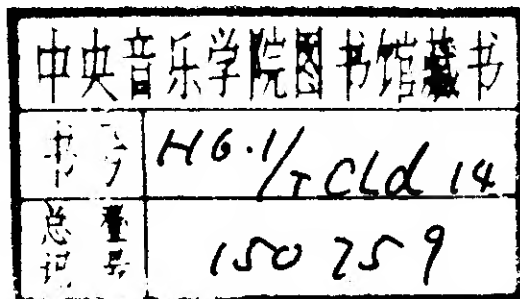 中央音乐学院图书馆藏书
书号 H6.1/TCLd 14
总登记号 150759